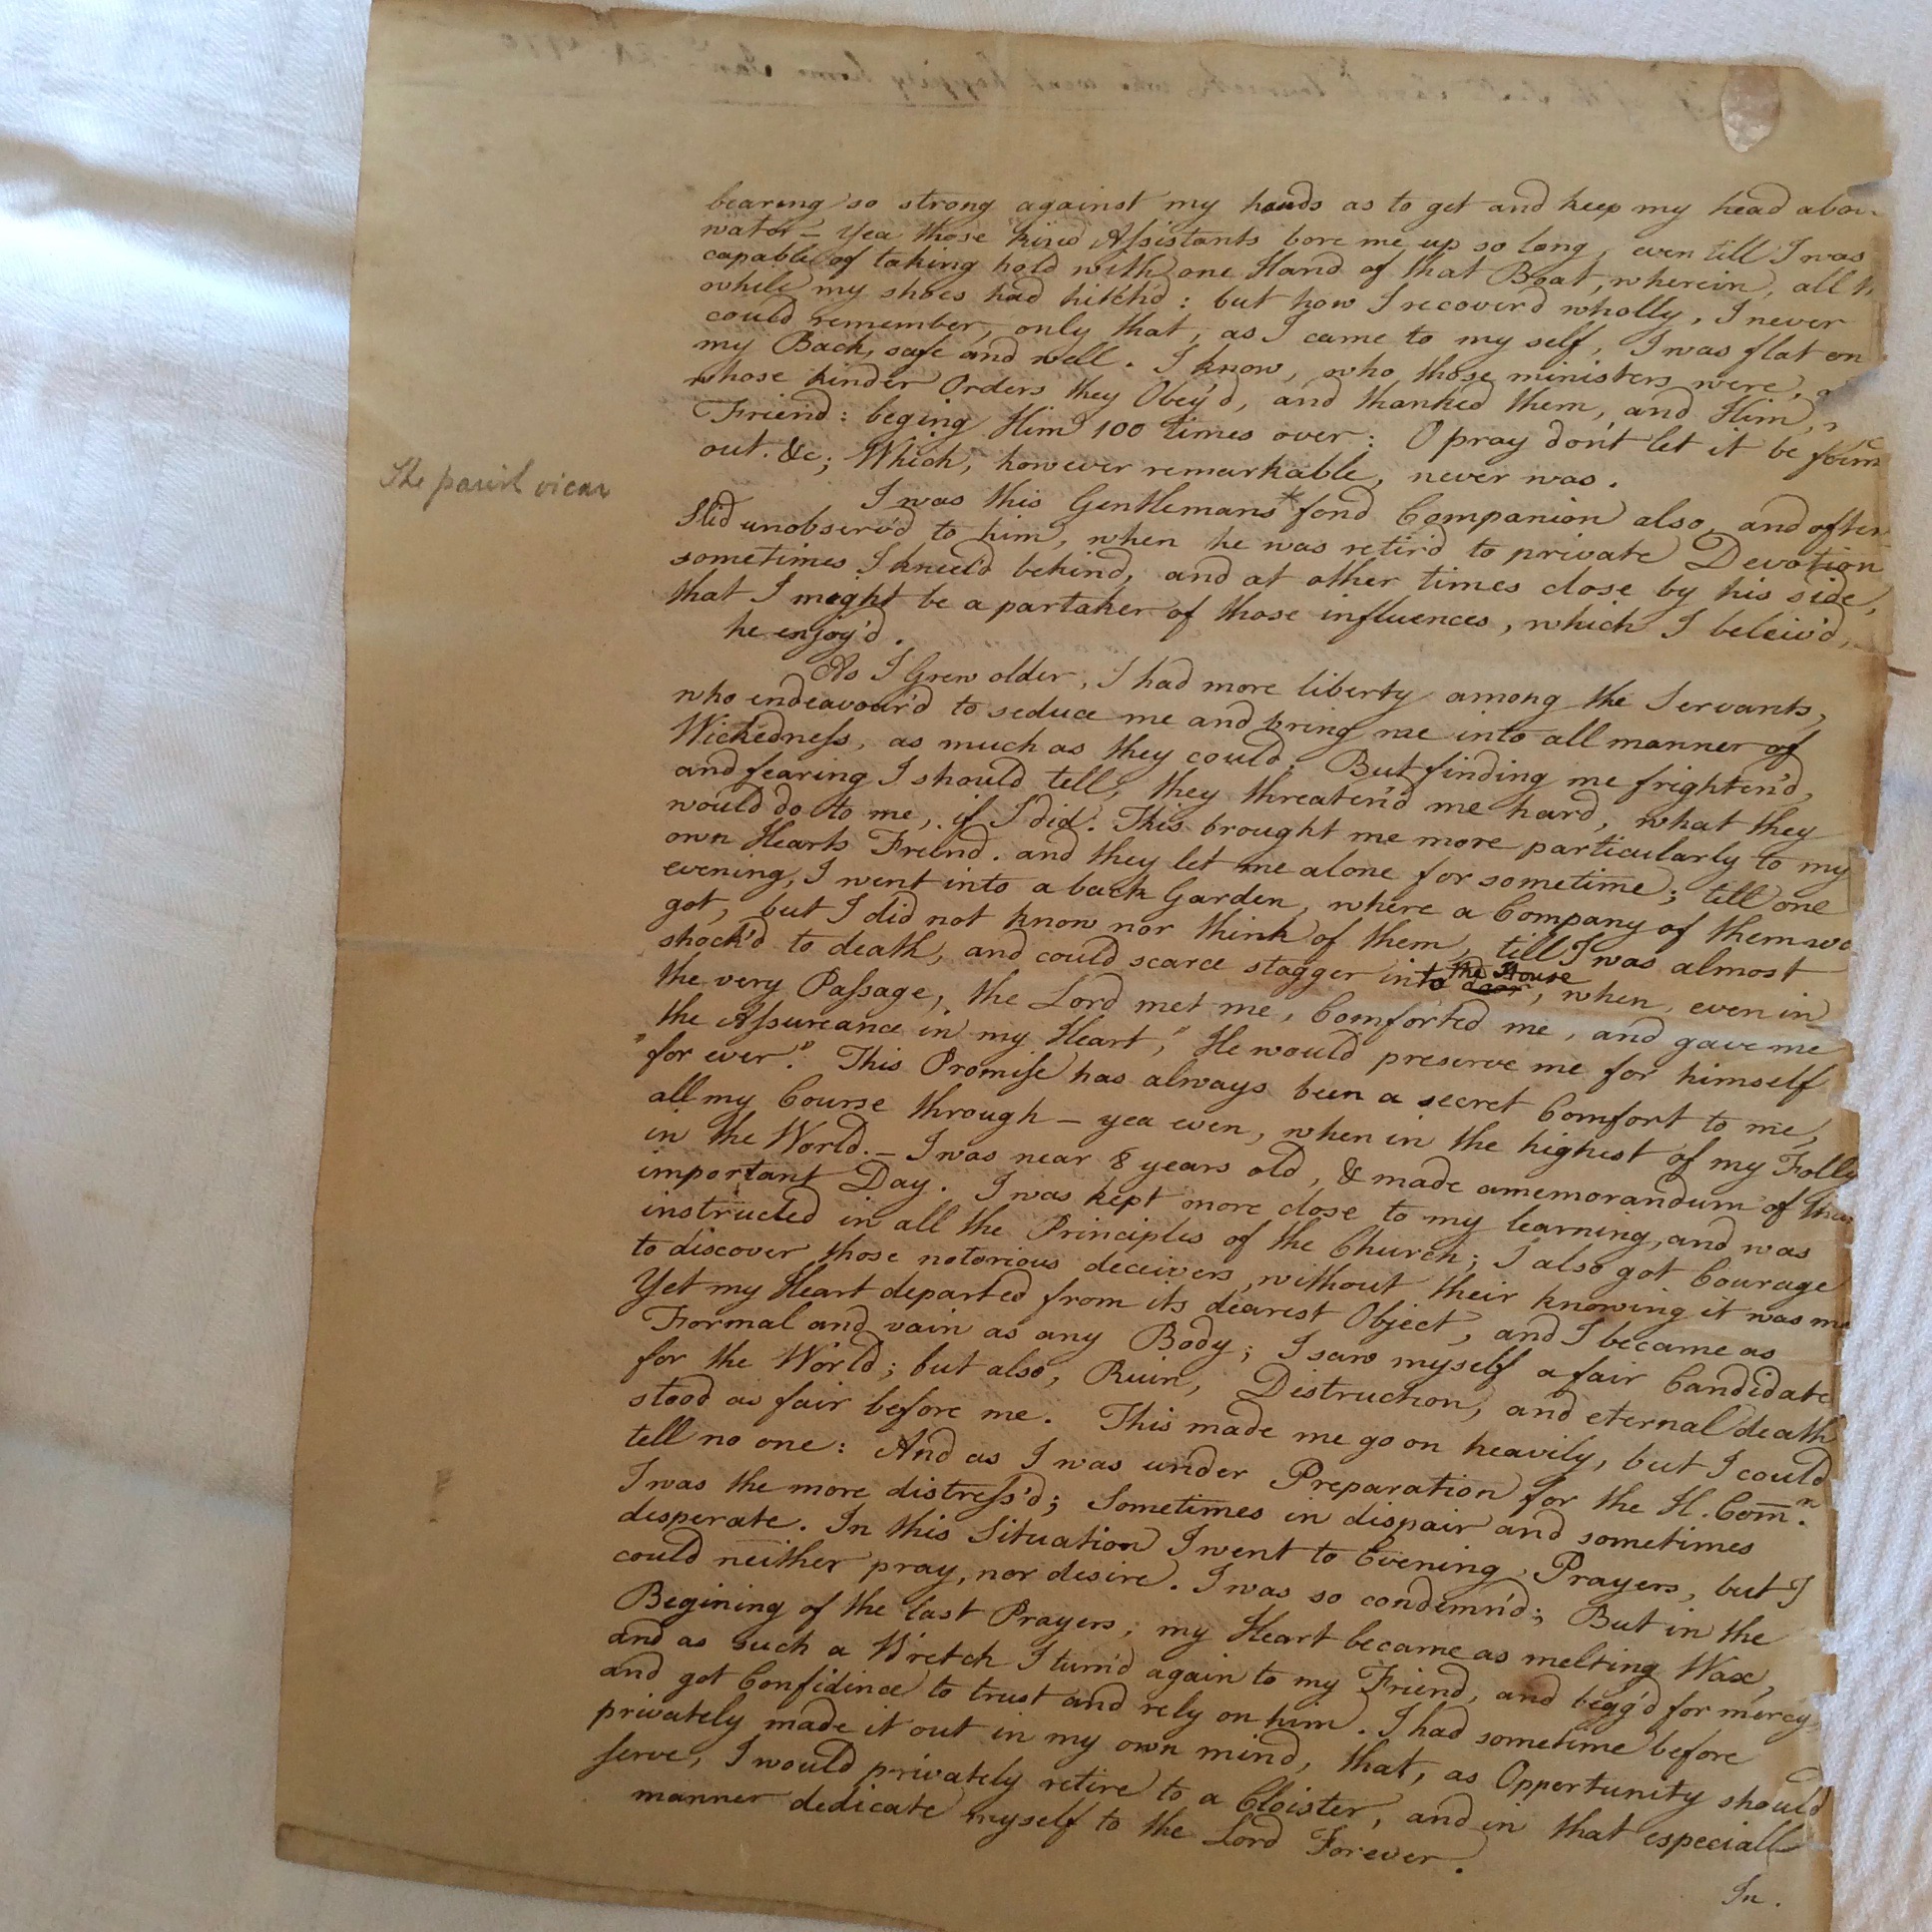 bearing so strong against my hands as to get and keep my head abov
water – yea those kind Assistants bore me up so long, even till I was
capable of taking hold with one Hand of that Boat, wherein, all th
while my shoes had hitch'd: but how I recover'd wholly, I never
could remember, only that, as I came to my self, I was flat on
my Back, safe and well. I know, who those ministers were,
whose kinder Orders they Obey'd, and thanked them, and Him,
Friend: beging Him 100 times over: O pray don't let it be foun
out. &c; Which, however remarkable, never was.
The parish vicar
I was this Gentlemans* fond Companion also, and often
Slid unobserv'd to him, when he was retir'd to private Devotion
sometimes I kneel'd behind, and at other times close by his side,
that I might be a partaker of those influences, which I beleiv'd,
he enjoy'd.
As I Grew older, I had more liberty among the Servants,
who endeavour'd to seduce me and bring me into all manner of
Wickedness, as much as they could. But finding me frighten'd,
and fearing I should tell, they threaten'd me hard, what they
would do to me, if I did. This brought me more particularly to my
own Hearts Freind. and they let me alone for sometime; till one
evening, I went into a back Garden, where a Company of them we
got, but I did not know nor think of them, till I was almost
shock'd to death, and could scarce stagger into the House door, when, even in
the very Passage, the Lord met me, Comforted me, and gave me
the Assureance in my Heart, "He would preserve me for himself
"for ever". This Promise has always been a secret Comfort to me,
all my Course through – yea even, when in the highest of my Folly
in the World. – I was near 8 years old, & made a memorandum of this
important Day. I was kept more close to my learning, and was
instructed in all the Principles of the Church; I also got Courage
to discover those notorious deceivers, without their knowing it was me
Yet my Heart departed from its dearest Object, and I became as
Formal and vain as any Body; I saw myself a fair Candidate
for the World; but also, Ruin, Distruction, and eternal death
stood as fair before me. This made me go on heavily, but I could
tell no one: And as I was under Preparation for the H. Com.n
I was the more distress'd; Sometimes in dispair and sometimes
desperate. In this Situation I went to Evening Prayers, but I
could neither pray, nor desire. I was so condemn'd; But in the
Begining of the last Prayers, my Heart became as melting Wax,
and as such a Wretch I turn'd again to my Friend, and begg'd for mercy,
and got Confidince to trust and rely on him. I had sometime before
privately made it out in my own mind, that, as Opportunity should
serve, I would privately retire to a Cloister, and in that especiall
manner dedicate myself to the Lord Forever.
In.